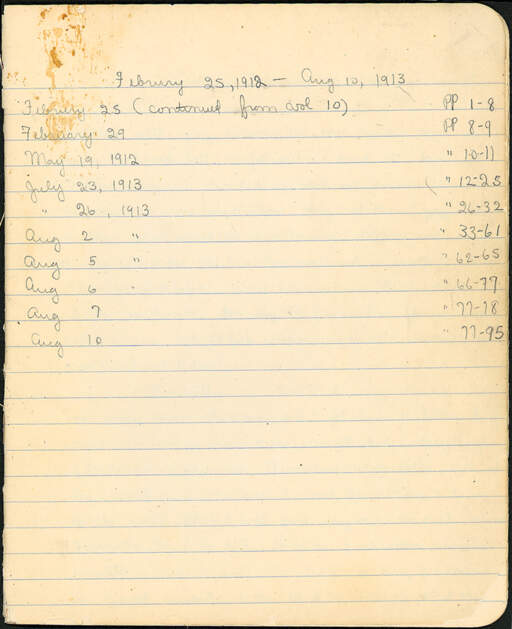 Februry 25, 1912 - Aug 10, 1913
Februry 25 (continued from vol 10) PP 1-8
February 29 PP 8-9
May 19, 1912 " 10-11
July 23, 1913 " 12-25
" 26, 1913 " 26-32
Aug 2 " " 33-61
Aug 5 " " 62-65
Aug 6 " " 66-77
Aug 7 " 77-78
Aug 10 " 77-95